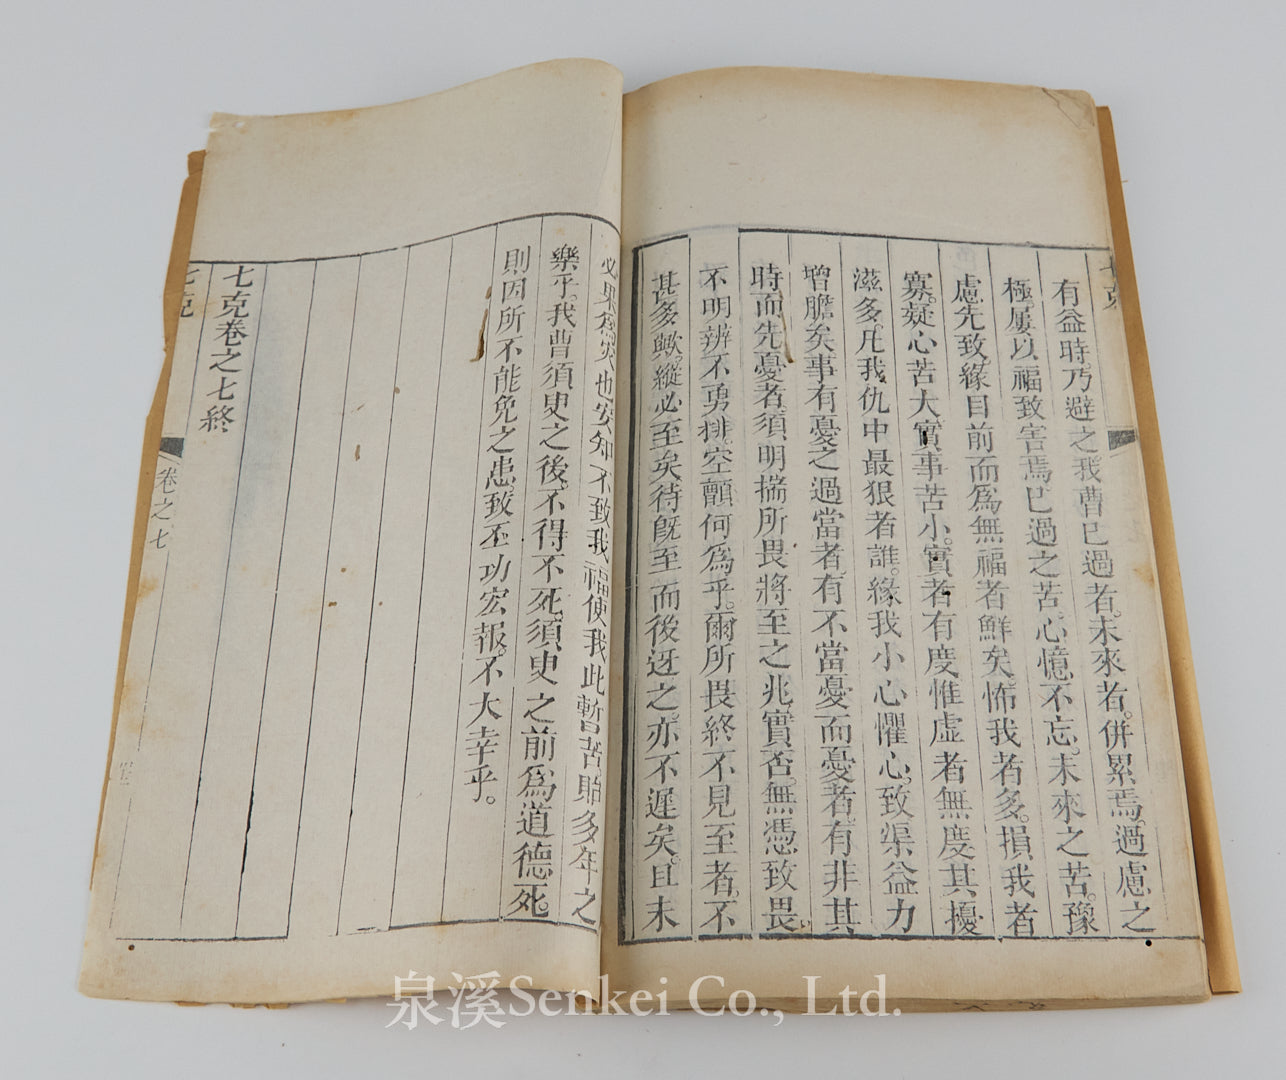 七克
有益時。乃避之。我曹已過者。未來者。併累焉。過慮之
極。屢以福致害焉。已過之苦。心憶不忘。未來之苦。豫
慮先致。緣目前而爲無福者鮮矣。怖我者多。損我者
寡。疑心苦大。實事苦小。實者有度。惟虛者無度。其擾
滋多。凡我仇中最狠者誰。緣我小心懼心。致渠益力
增膽矣。事有憂之過當者。有不當憂而憂者。有非其
時而先憂者。須明揣所畏將至之兆實否。無憑致畏。
不明辨。不勇排。空顫何爲乎。爾所畏終不見至者。不
甚多歟。縱必至矣。待旣至而後迓之。亦不遲矣。且未
必果爲災也。安知不致我福。使我此暫苦貽多年之
樂乎。我曹須史之後。不得不死。須史之前爲道德死。
則因所不能免之患。致丕功宏報。不大幸乎。
七克卷之七終
七克
卷之七
泉溪Senkei Co., Ltd.